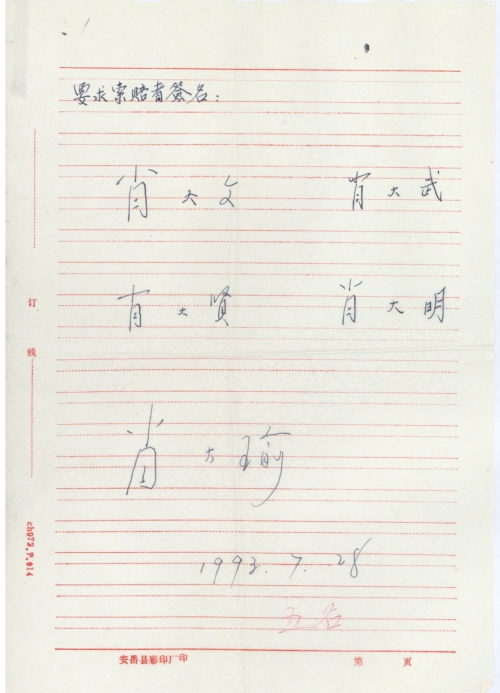 要求索赔者签名：
肖大文 肖大武
肖大贤 肖大明
肖大瑜
1993.7.28
五名
订
线
ch072,P,014
安岳县彩印厂印 第 页